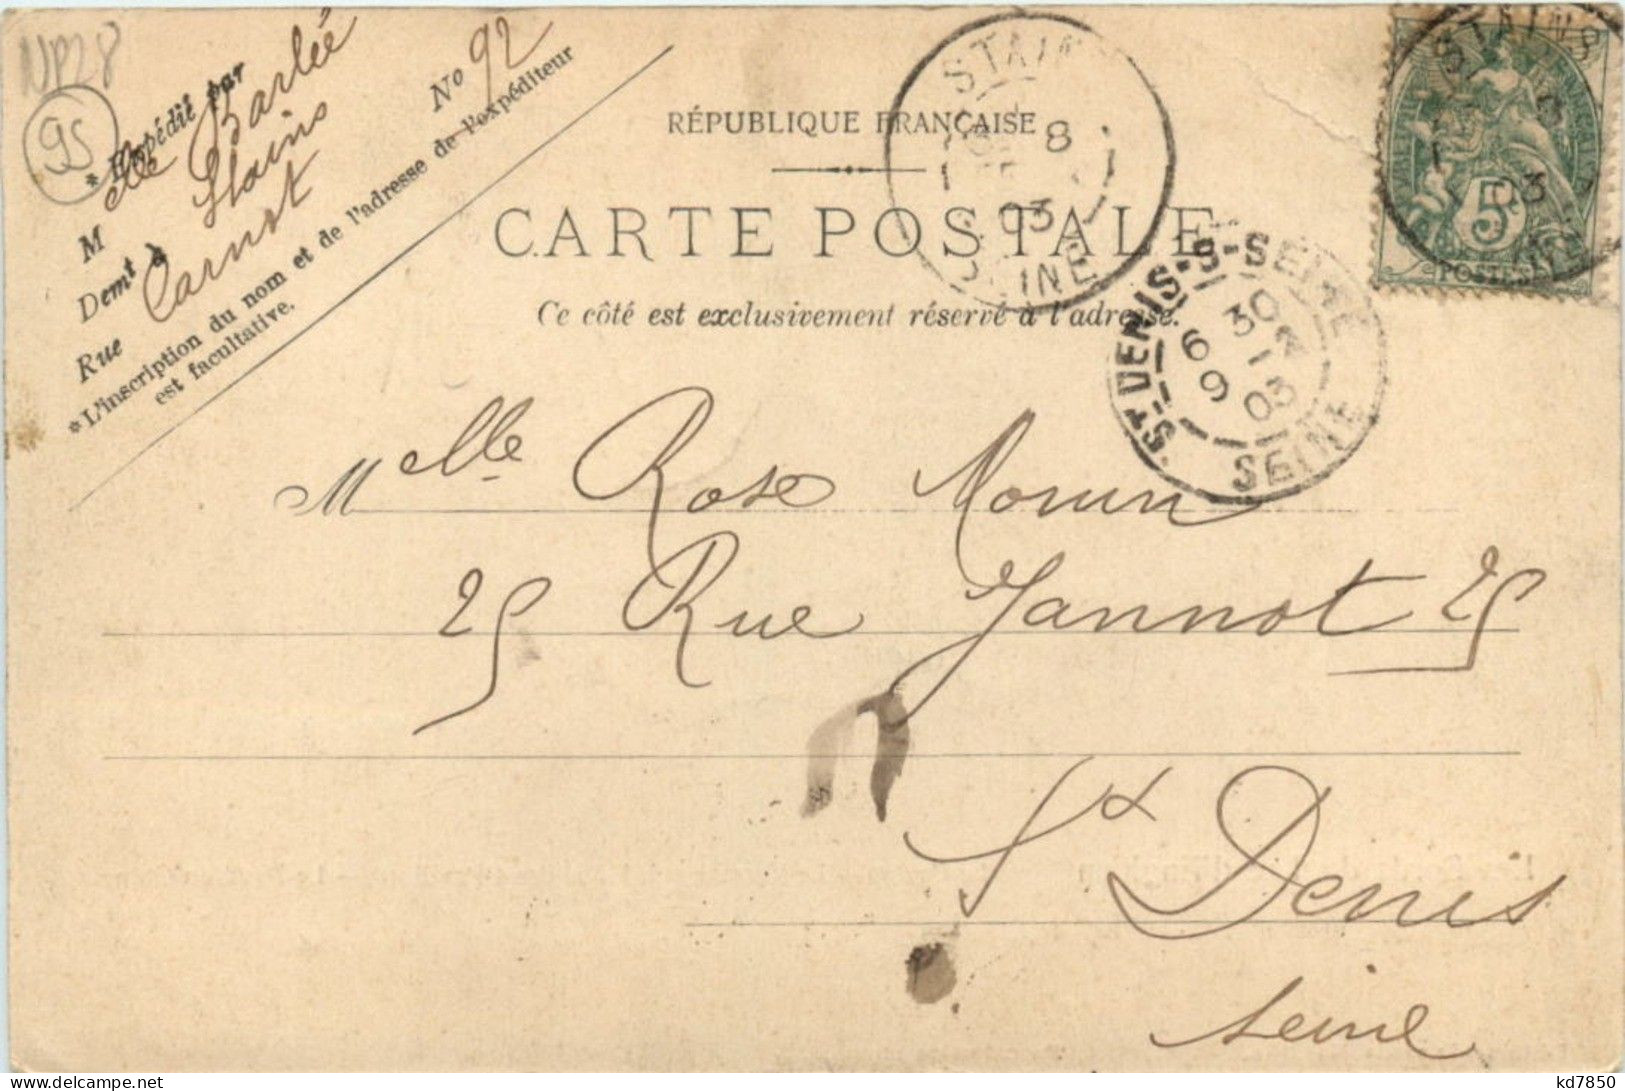 NP28
95
* Expédié par
Melle Barlée
Demt à Stains
Rue Carnot
No 92
*L'inscription du nom et de l'adresse de l'expéditeur
est facultative.
RÉPUBLIQUE FRANÇAISE
CARTE POSTALE
Ce côté est exclusivement réservé à l'adresse.
STAINS
8
03
SEINE
ST DENIS-S-SEINE
6 30
9 03
SEINE
STAINS
03
5
POSTES
Melle Rose Morin
25 Rue Jannot 25
St Denis
Seine
kd7850